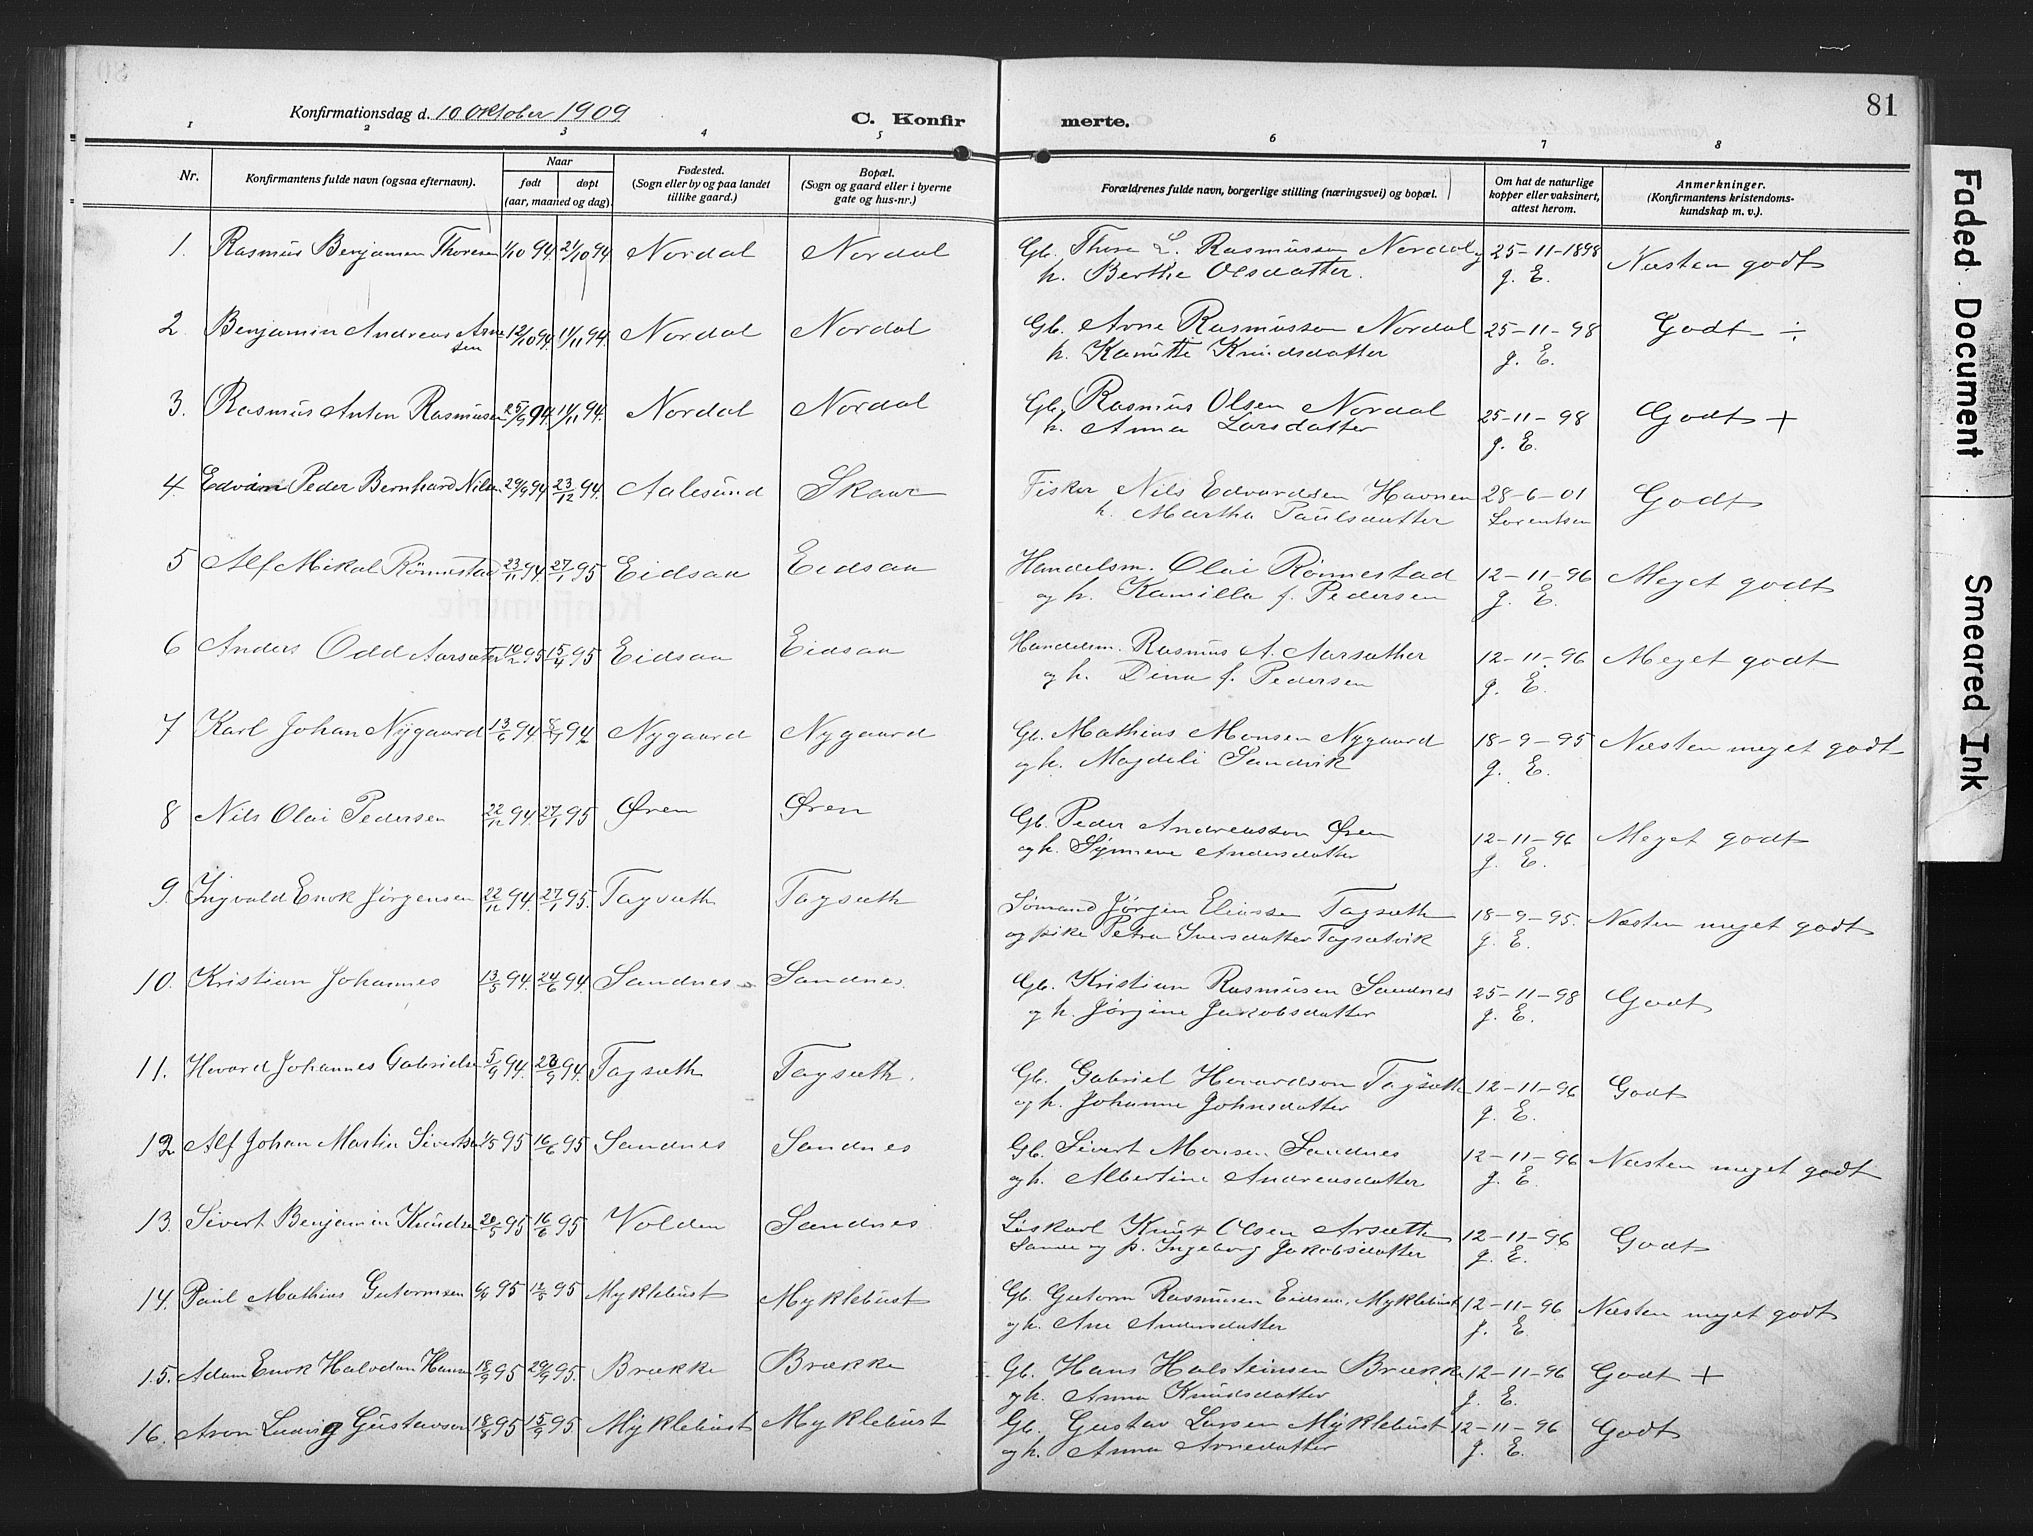 Konfirmationsdag d. 10 Oktober 1909
C. Konfir merte.
81
1 2 3 4 5 6 7 8
Nr.
Konfirmantens fulde navn (ogsaa efternavn).
Naar
født døpt
(aar, maaned og dag).
Fødested.
(Sogn eller by og paa landet
tillike gaard.)
Bopæl.
(Sogn og gaard eller i byerne
gate og hus-nr.)
Forældrenes fulde navn, borgerlige stilling (næringsvei) og bopæl.
Om hat de naturlige
kopper eller vaksinert,
attest herom.
Anmerkninger.
(Konfirmantens kristendoms-
kundskap m. v.).
1. Rasmus Benjamin Thoresen 1/10 94. 21/10 94 Nordal Nordal Gb. Thore L. Rasmussen Nordal og 25-11-1898 Næsten godt
h. Berthe Olsdatter. g. E.
2. Benjamin Andreas Arne 12/10 94. 11/11 94. Nordal Nordal Gb. Arne Rasmusson Nordal 25-11-98 Godt ÷
sen h. Kanutte Knudsdatter g. E.
3. Rasmus Anton Rasmusen 25/9 94. 11/11 94. Nordal Nordal Gb. Rasmus Olsen Nordal 25-11-98 Godt +
h. Anna Larsdatter g. E.
4. Edvin Peder Bernhard Nilsen 29/9 94 23/12 94. Aalesund Skaar Fisker Nils Edvardsen Havnen 28-6-01 Godt
h. Martha Paulsdatter Lorentsen
5 Alf Mikal Rönnestad 23/11 94. 27/1 95 Eidsaa Eidsaa Handelsm. Olai Rönnestad 12-11-96 Meget godt
og h. Kamilla f. Pedersen g. E.
6 Anders Odd Aarsæther 10/2 95 15/4 95 Eidsaa Eidsaa Handelsm. Rasmus A. Aarsæther 12-11-96 Meget godt
og h. Dina f. Pedersen g. E.
7 Karl Johan Nygaard 13/6 94. 8/7 94 Nygaard Nygaard Gb. Mathias Monsen Nygaard 18-9-95 Næsten meget godt
og h. Magdeli Sandvik g. E.
8 Nils Olai Pedersen 22/11 94. 27/1 95 Øren Øren Gb. Peder Andreasson Øren 12-11-96 Meget godt
og h. Synneve Andersdatter g. E.
9. Ingvald Enok Jørgensen 22/11 94. 27/1 95. Tagsæth Tagsæth Sømand Jørgen Eliassen Tagsæth 18-9-95. Næsten meget godt
og pike Petra Iversdatter Tagsætvik g. E.
10. Kristian Johannes 13/5 94. 24/6 94. Sandnes Sandnes. Gb. Kristian Rasmusen Sandnes 25-11-98 Godt
og h. Jørgine Jakobsdatter g. E.
11. Hovard Johannes Gabrielsen 5/9 94. 23/9 94. Tagsæth Tagsæth. Gb. Gabriel Hovardson Tagsæth 12-11-96 Godt
og h. Johanne Johnsdatter g. E.
12 Alf Johan Martin Sivertsen 1/5 95 16/6 95 Sandnes Sandnes Gb. Sivert Monsen Sandnes 12-11-96 Næsten meget godt
og h. Albertine Andreasdatter g. E.
13. Sivert Benjamin Knudsen 20/5 95 16/6 95 Volden Sandnes Løskarl Knut Olsen Arsæth 12-11-96 Godt
Sande og p. Ingeborg Jakobsdatter g. E.
14. Paul Mathias Gutormsen 95 95 Myklebust Myklebust Gb. Gutorm Rasmusen Eidsen. Myklebust 12-11-96 Næsten meget godt
og h. Ane Andersdatter g. E.
15. Adam Enok Halvdan Hansen 18/9 95 29/9 95. Brække Brække Gb. Hans Halsteinsen Brække 12-11-96 Godt +
og h. Anna Knudsdatter g. E.
16. Aron Ludvig Gustavsen 18/8 95 15/9 95. Myklebust Myklebust Gb. Gustav Larsen Myklebust 12-11-96 Godt
og h. Anna Arnedatter g. E.
Faded Document
Smeared Ink